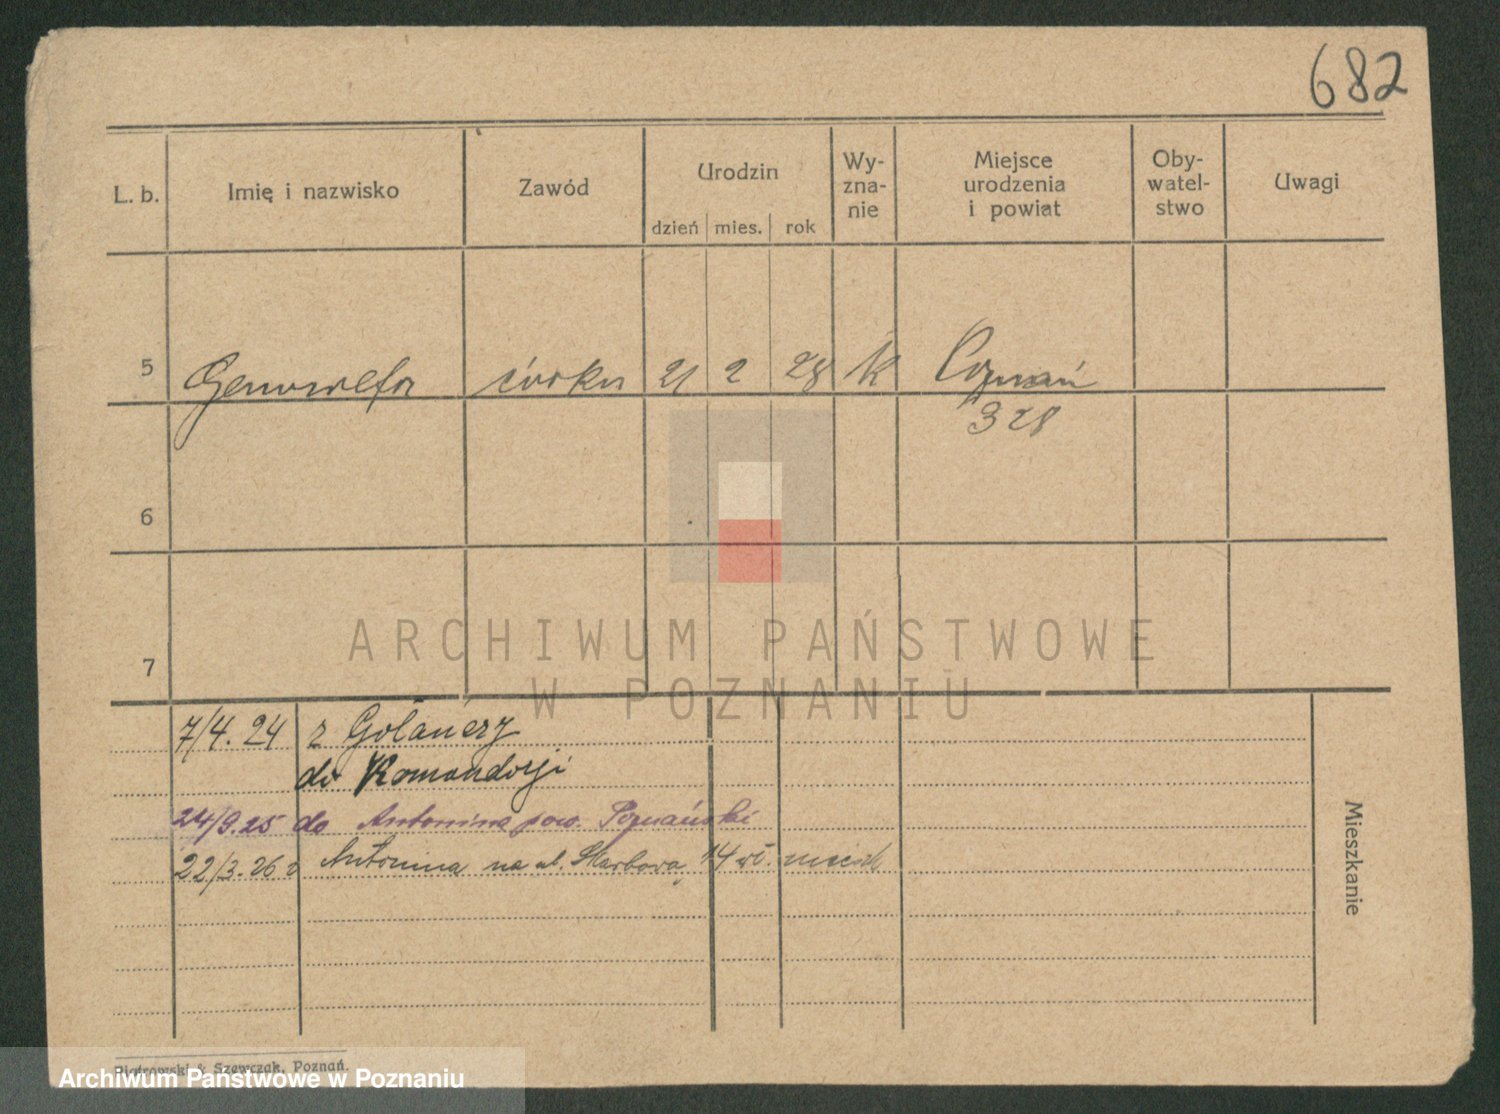 682
L. b. Imię i nazwisko Zawód Urodzin dzień mies. rok Wy-zna-nie Miejsce urodzenia i powiat Oby-watel-stwo Uwagi
5 Genowefa córka 21 2 28 k Poznań
328
6
7
ARCHIWUM PAŃSTWOWE
W POZNANIU
7/4. 24 z Gołańczy
do Komandorji
24/9.25 do Antonina pow. Poznański
22/3.26 z Antonina na ul. Skarbowa 14 wł. mieszk
Mieszkanie
Piotrowski & Szewczak, Poznań.
Archiwum Państwowe w Poznaniu